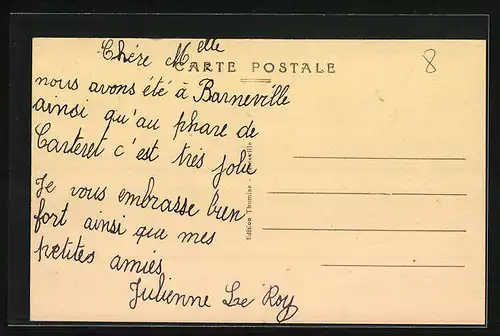 Chère Melle
CARTE POSTALE
8
nous avons été à Barneville
ainsi qu'au phare de
Carteret c'est très jolie
Je vous embrasse bien
fort ainsi que mes
petites amies
Julienne Le Roy
Edition Thomine -